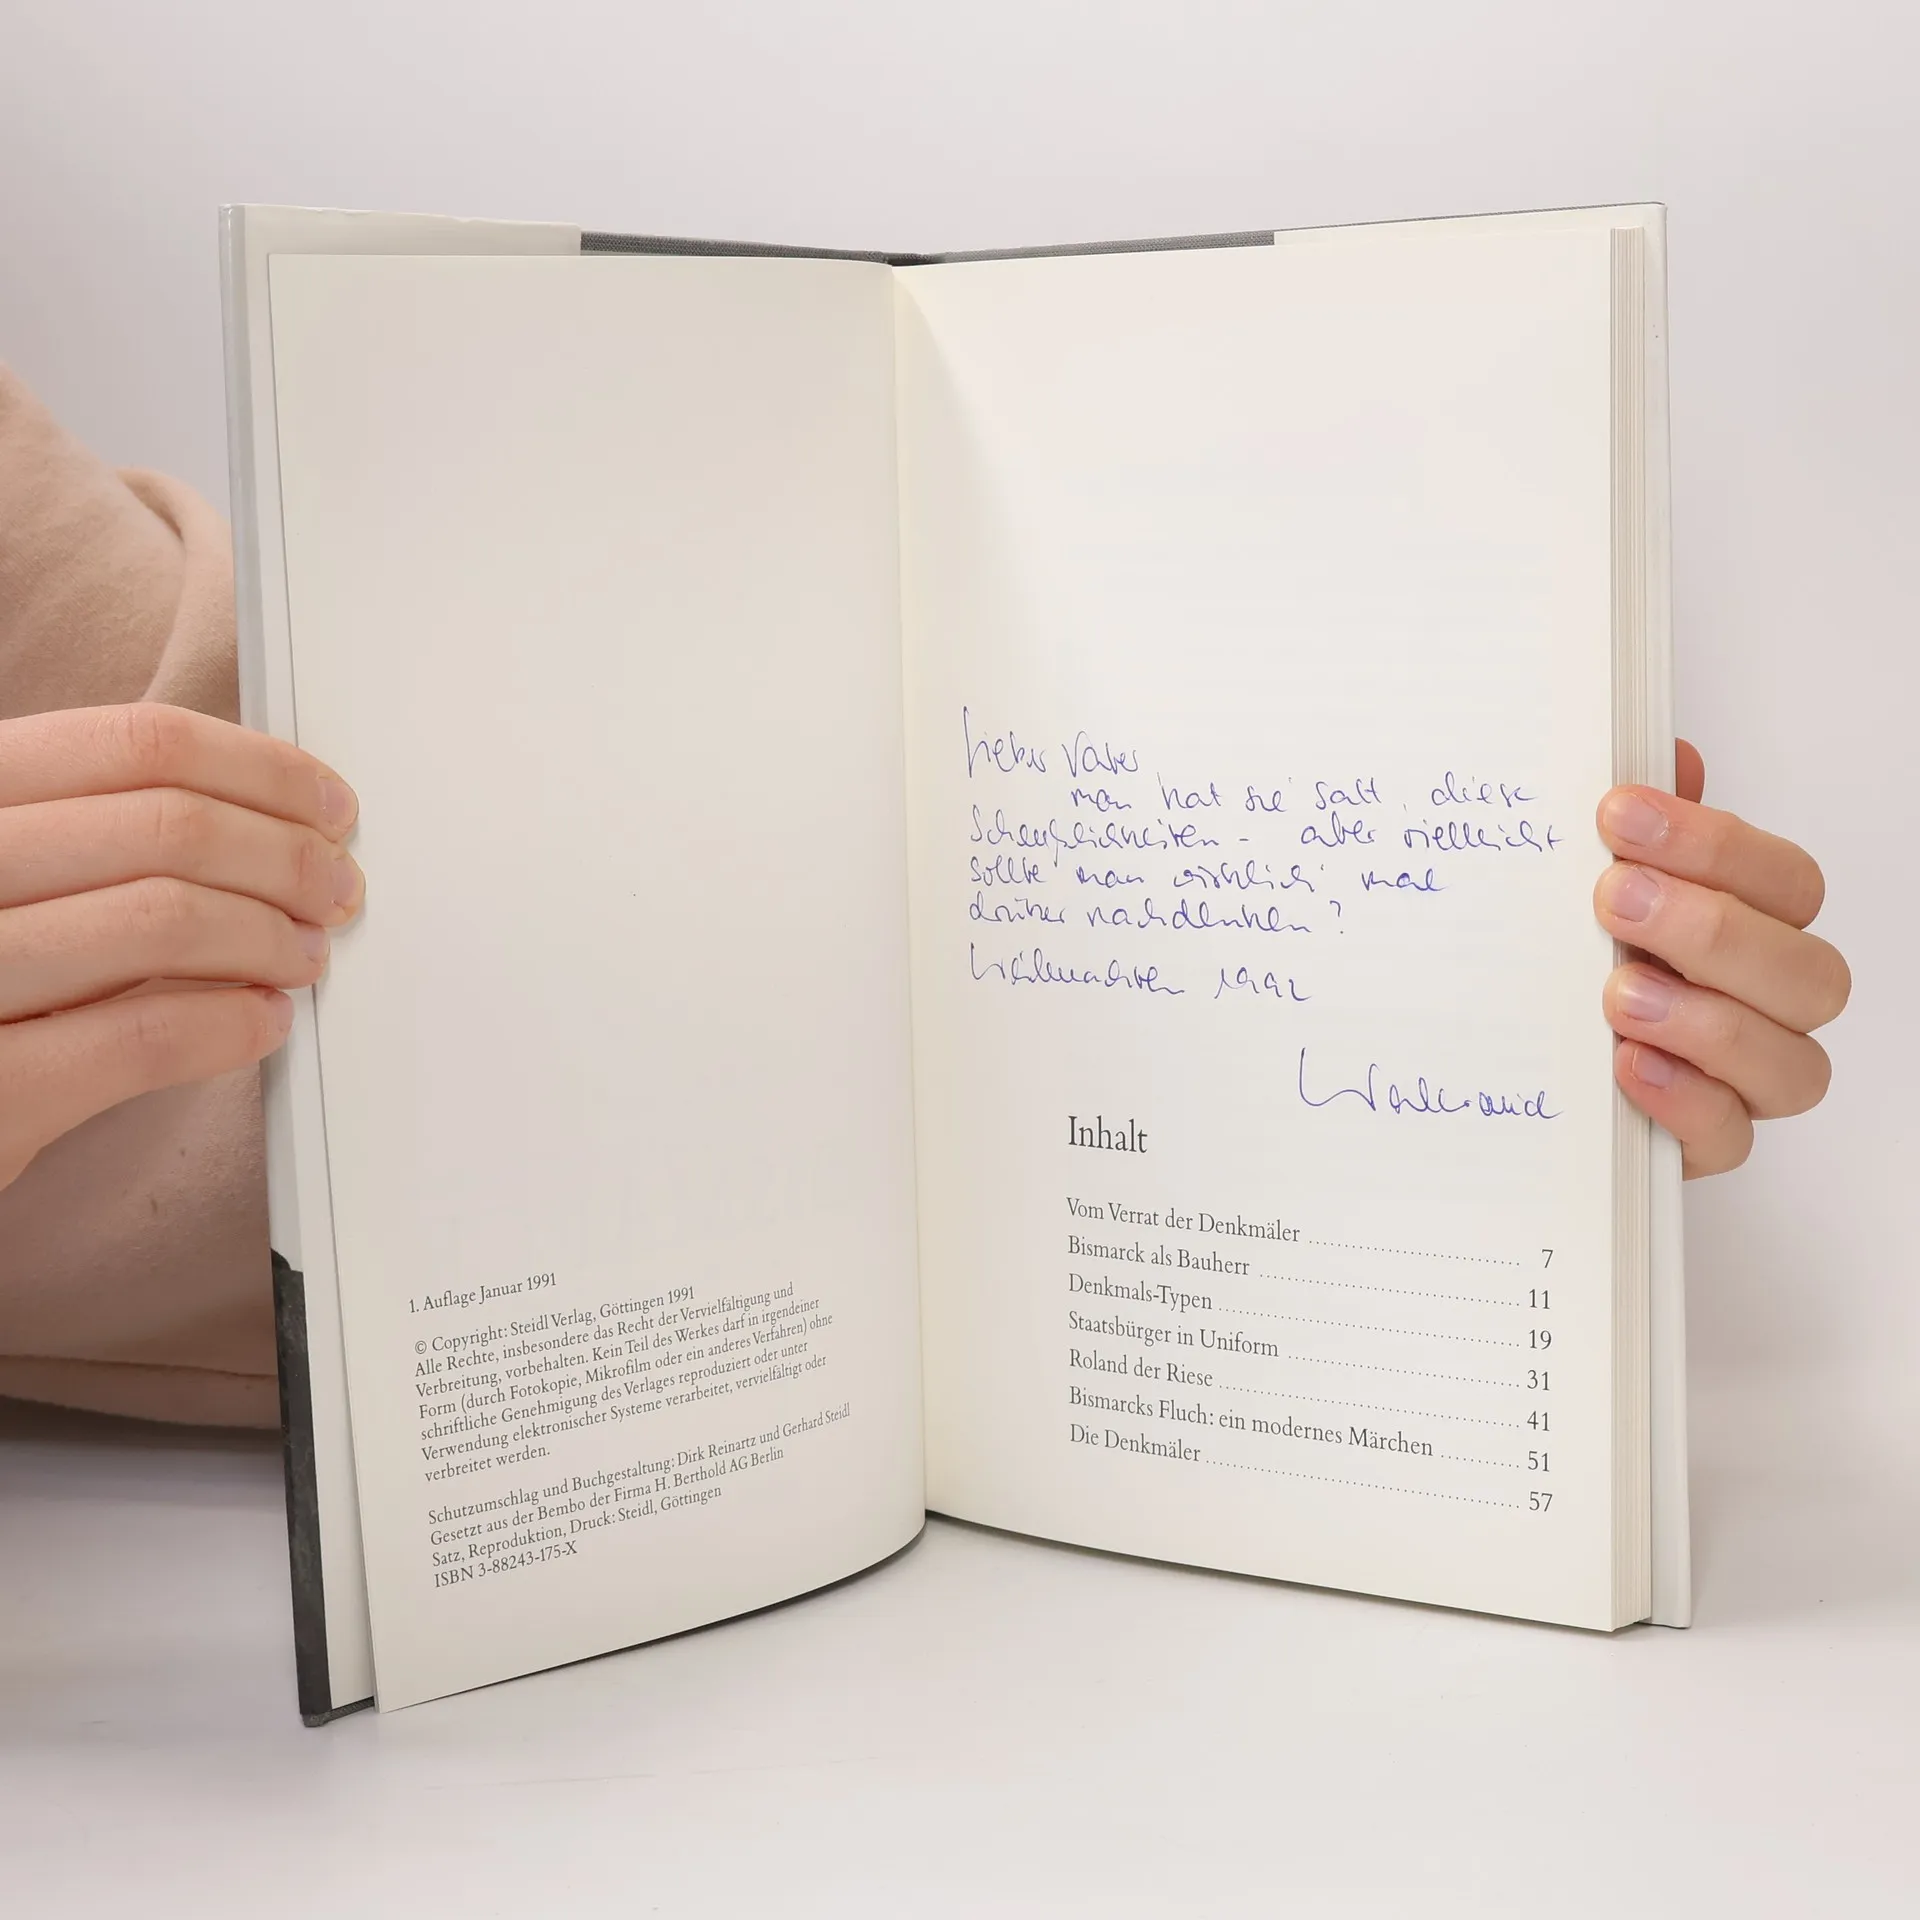 1. Auflage Januar 1991
© Copyright: Steidl Verlag, Göttingen 1991
Alle Rechte, insbesondere das Recht der Vervielfältigung und
Verbreitung, vorbehalten. Kein Teil des Werkes darf in irgendeiner
Form (durch Fotokopie, Mikrofilm oder ein anderes Verfahren) ohne
schriftliche Genehmigung des Verlages reproduziert oder unter
Verwendung elektronischer Systeme verarbeitet, vervielfältigt oder
verbreitet werden.
Schutzumschlag und Buchgestaltung: Dirk Reinartz und Gerhard Steidl
Gesetzt aus der Bembo der Firma H. Berthold AG Berlin
Satz, Reproduktion, Druck: Steidl, Göttingen
ISBN 3-88243-175-X
Lieber Vater,
man hat sie satt, diese
Scheußlichkeiten - aber vielleicht
sollte man wirklich mal
drüber nachdenken?
Weihnachten 1992
Inhalt
Vom Verrat der Denkmäler 7
Bismarck als Bauherr 11
Denkmals-Typen 19
Staatsbürger in Uniform 31
Roland der Riese 41
Bismarcks Fluch: ein modernes Märchen 51
Die Denkmäler 57